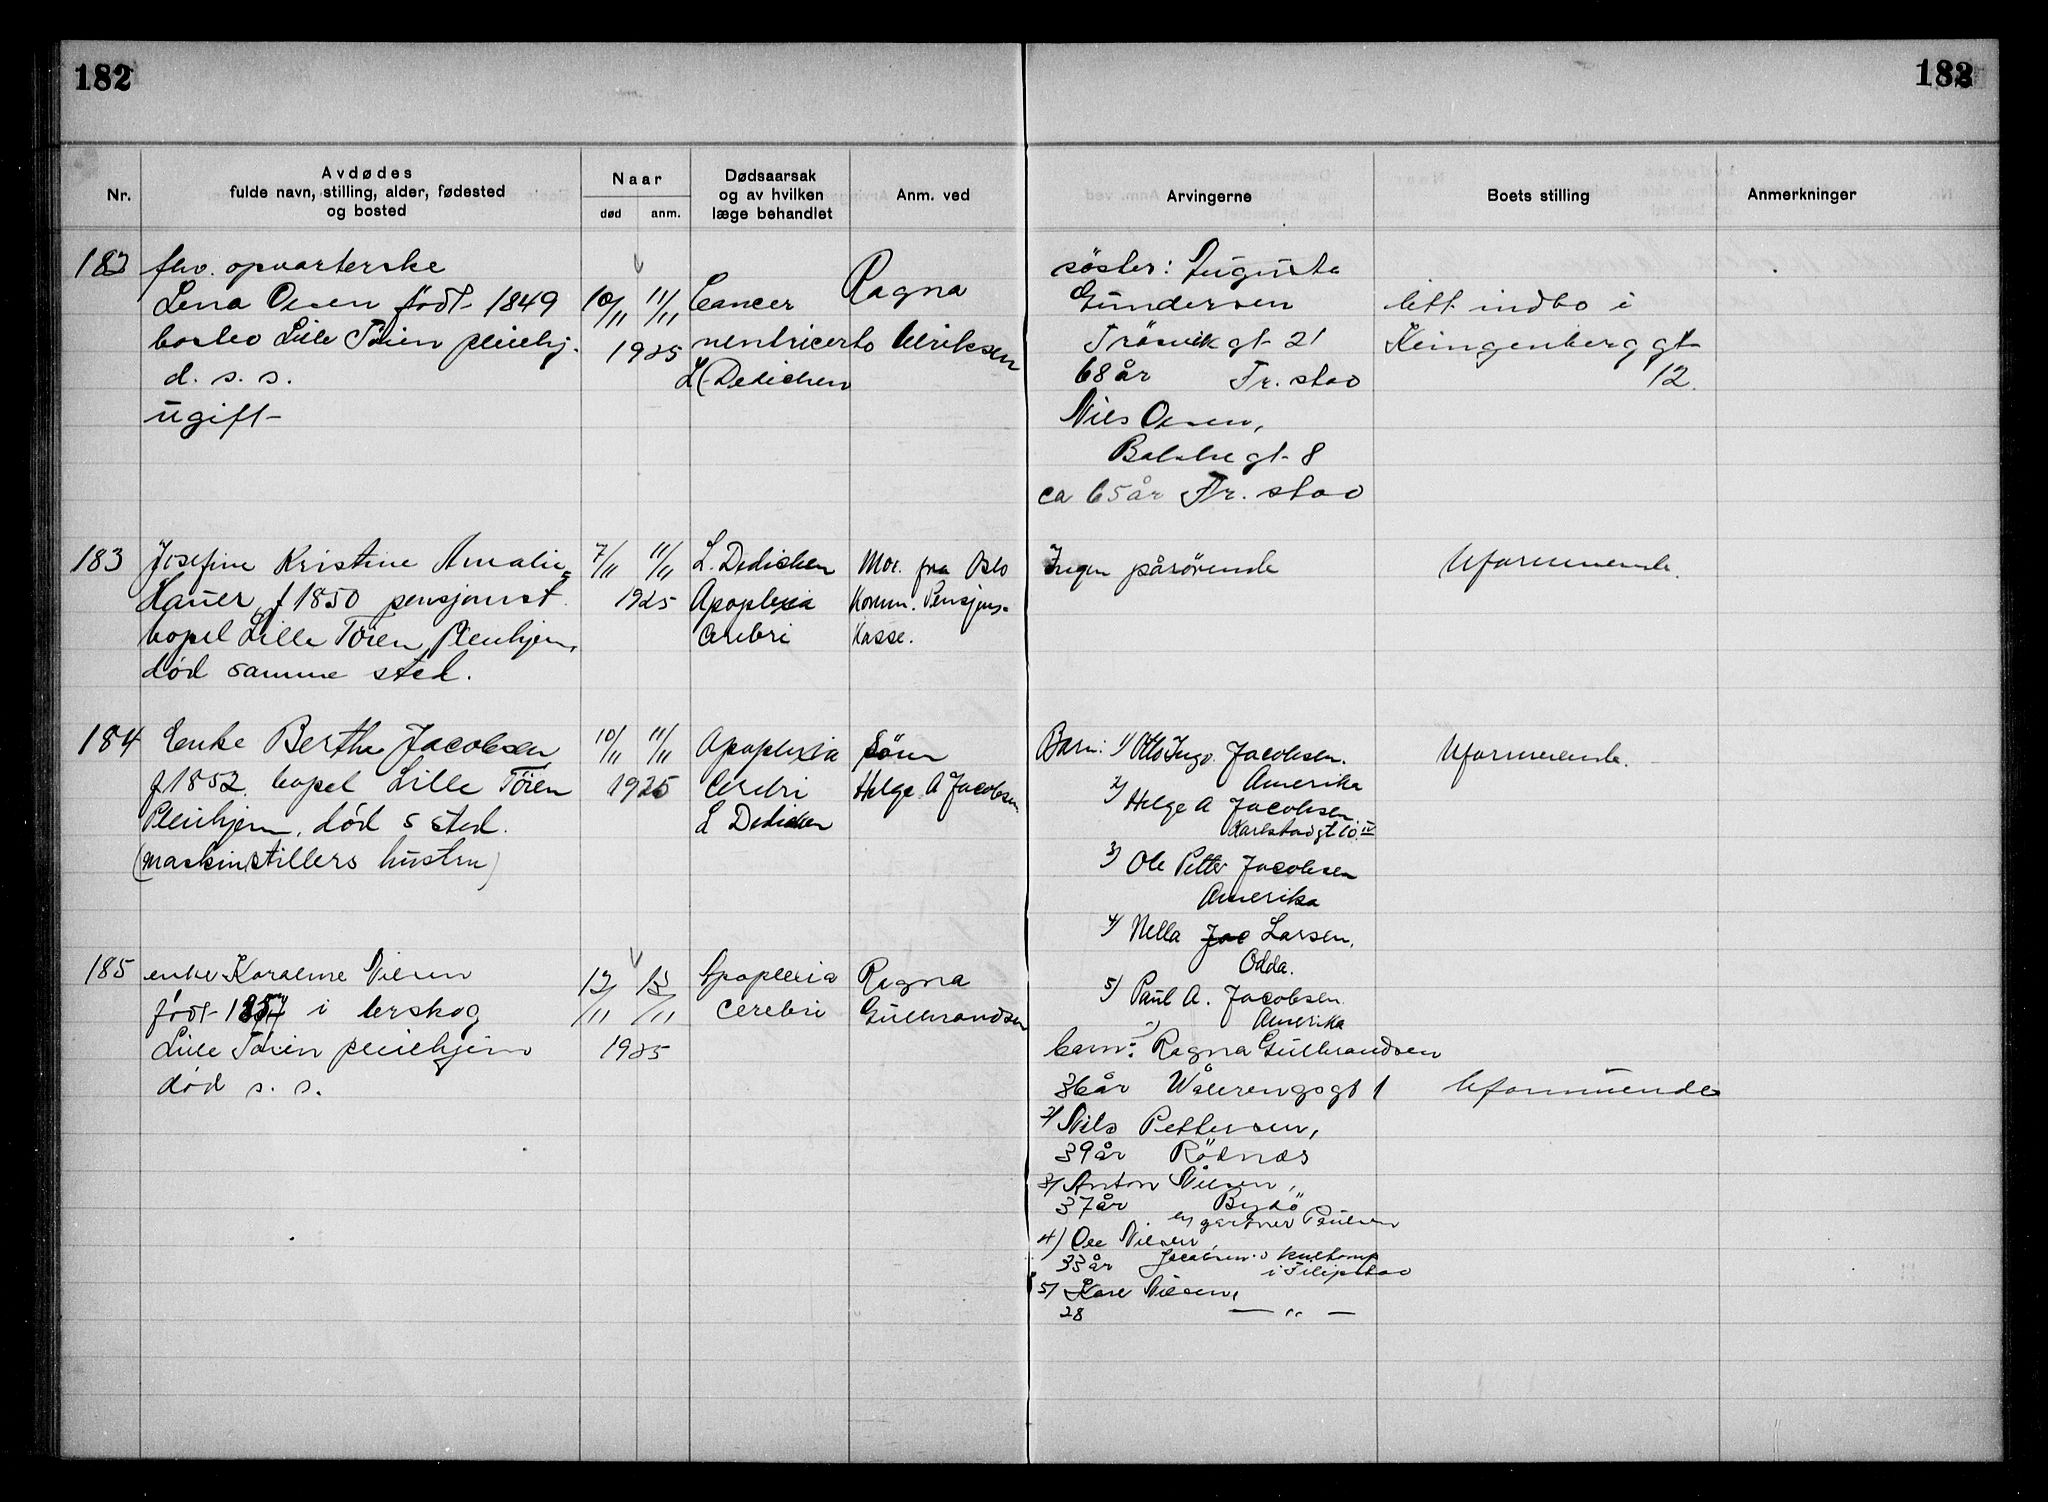 182
183
Nr.
Avdødes
fulde navn, stilling, alder, fødested
og bosted
Naar
død
anm.
Dødsaarsak
og av hvilken
læge behandlet
Anm. ved
Arvingerne
Boets stilling
Anmerkninger
182
fhv. opvarterske
Lena Olsen født 1849
bosted Lille Töien pleiehj.
d. s. s.
ugift
10/11 11/11
1925
Cancer
ventriculi
L. Dedichen
Ragna
Ulriksen
söster: Augusta
Gundersen
Trösvik gt 21
68 år Fr. stad
Nils Olsen,
gt 8
ca 65 år Fr. stad
litt indbo i
Klingenberg gt
12.
183
Josefine Kristine Amalie
Hauer, f 1850 pensjonist
bopel Lille Töien Pleiehjem,
død samme sted.
7/11 11/11
1925
L. Dedichen
Apoplexia
cerebri
fra Oslo
Komm. Pensjons-
Kasse.
Ingen pårørende
Uformuende.
184
Enke Bertha Jacobsen
f 1852. bopel Lille Töien
Pleiehjem, död s sted.
(maskinstillers hustru)
10/11 11/11
1925
Apoplexia
Cerebri
L Dedichen
Sönn
Helge A Jacobsen
Barn: 1) Otto Ingv. Jacobsen.
Amerika
2) Helge A Jacobsen
Karlstadgt 10 IV
3) Ole Petter Jacobsen
Amerika
4) Nella Jac Larsen,
Odda.
5) Paul A. Jacobsen
Amerika
Uformuende.
185
enke Karoline Nilsen
født 1857 i Ierskog
Lille Töien pleiehjem
död s. s.
12/11 13/11
1925
Apoplexia
cerebri
Ragna
Gulbrandsen
barn: 1) Ragna Gulbrandsen
36 år Vålerengsgt 1
2) Nils Pettersen,
39 år Rödnes
3) Anton Nilsen,
37 år Bygdö
gartner Paulsen
4) Ole Nilsen
33 år Jacobsen kulkomp
i Filipstad
5) Karl Nilsen,
28 — " —
Uformuende